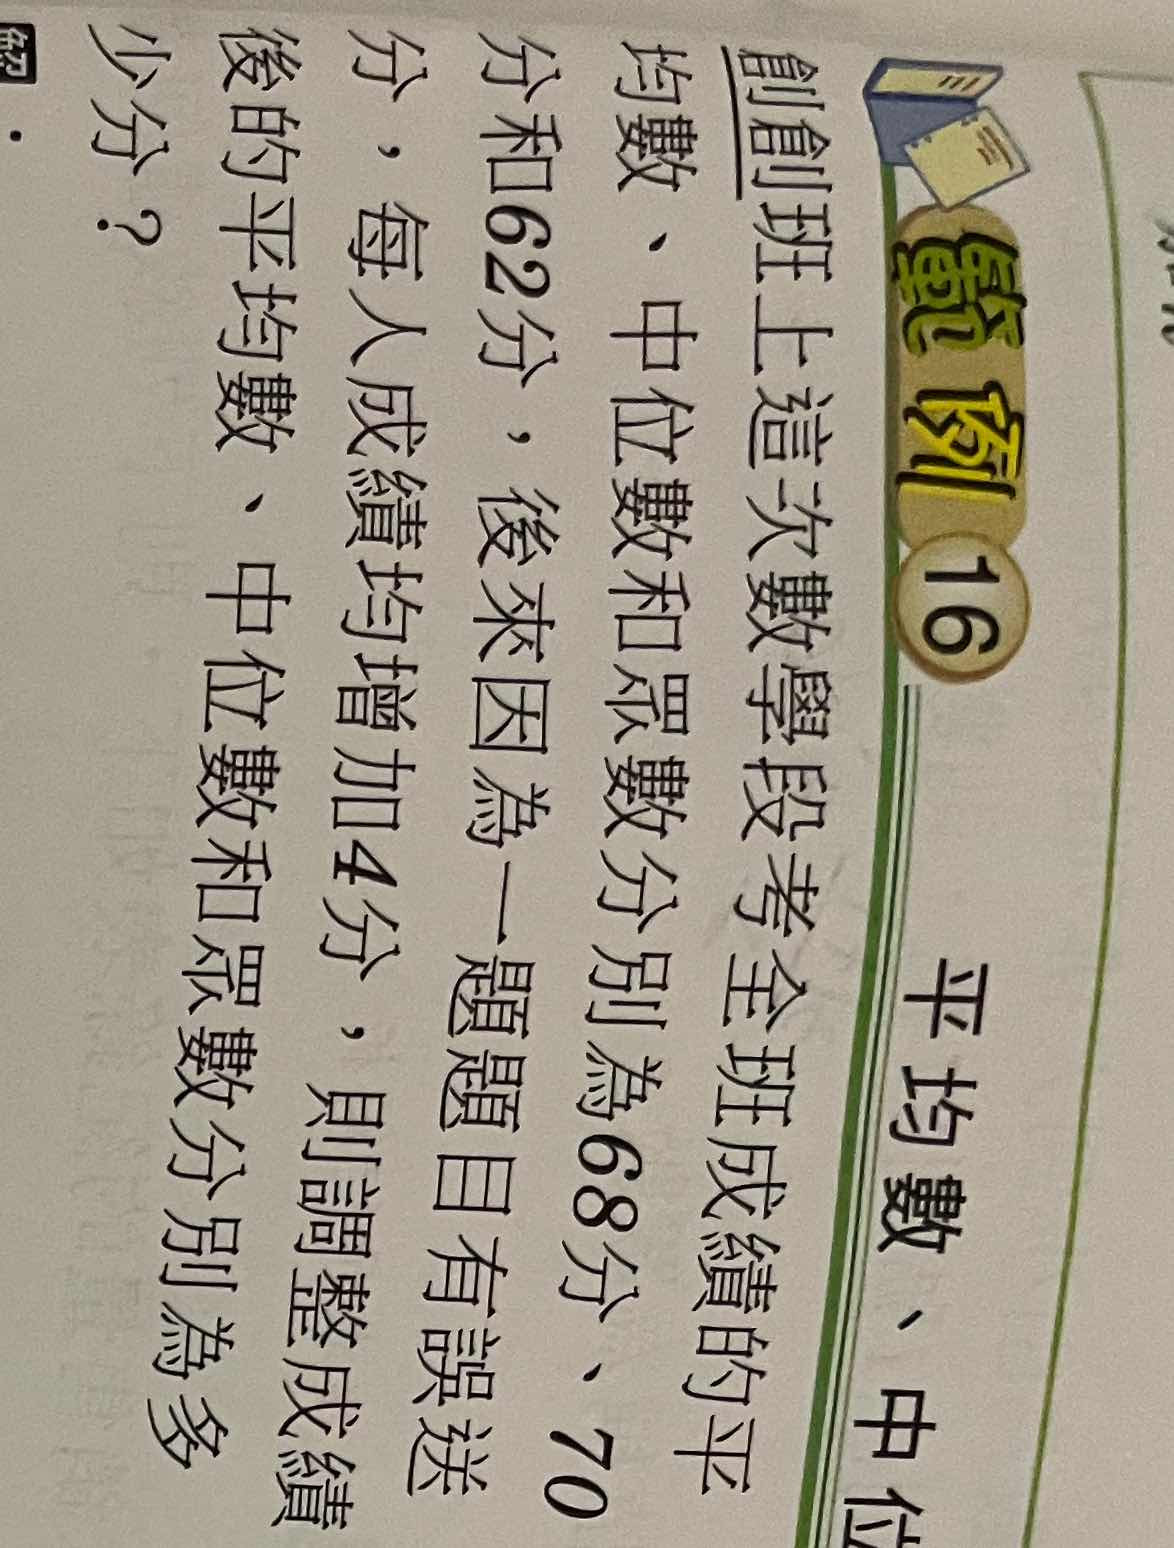 範例16 平均數、中位
創創班上這次數學段考全班成績的平
均數、中位數和眾數分別為68分、70
分和62分，後來因為一題題目有誤送
分，每人成績均增加4分，則調整成績
後的平均數、中位數和眾數分別為多
少分？
解